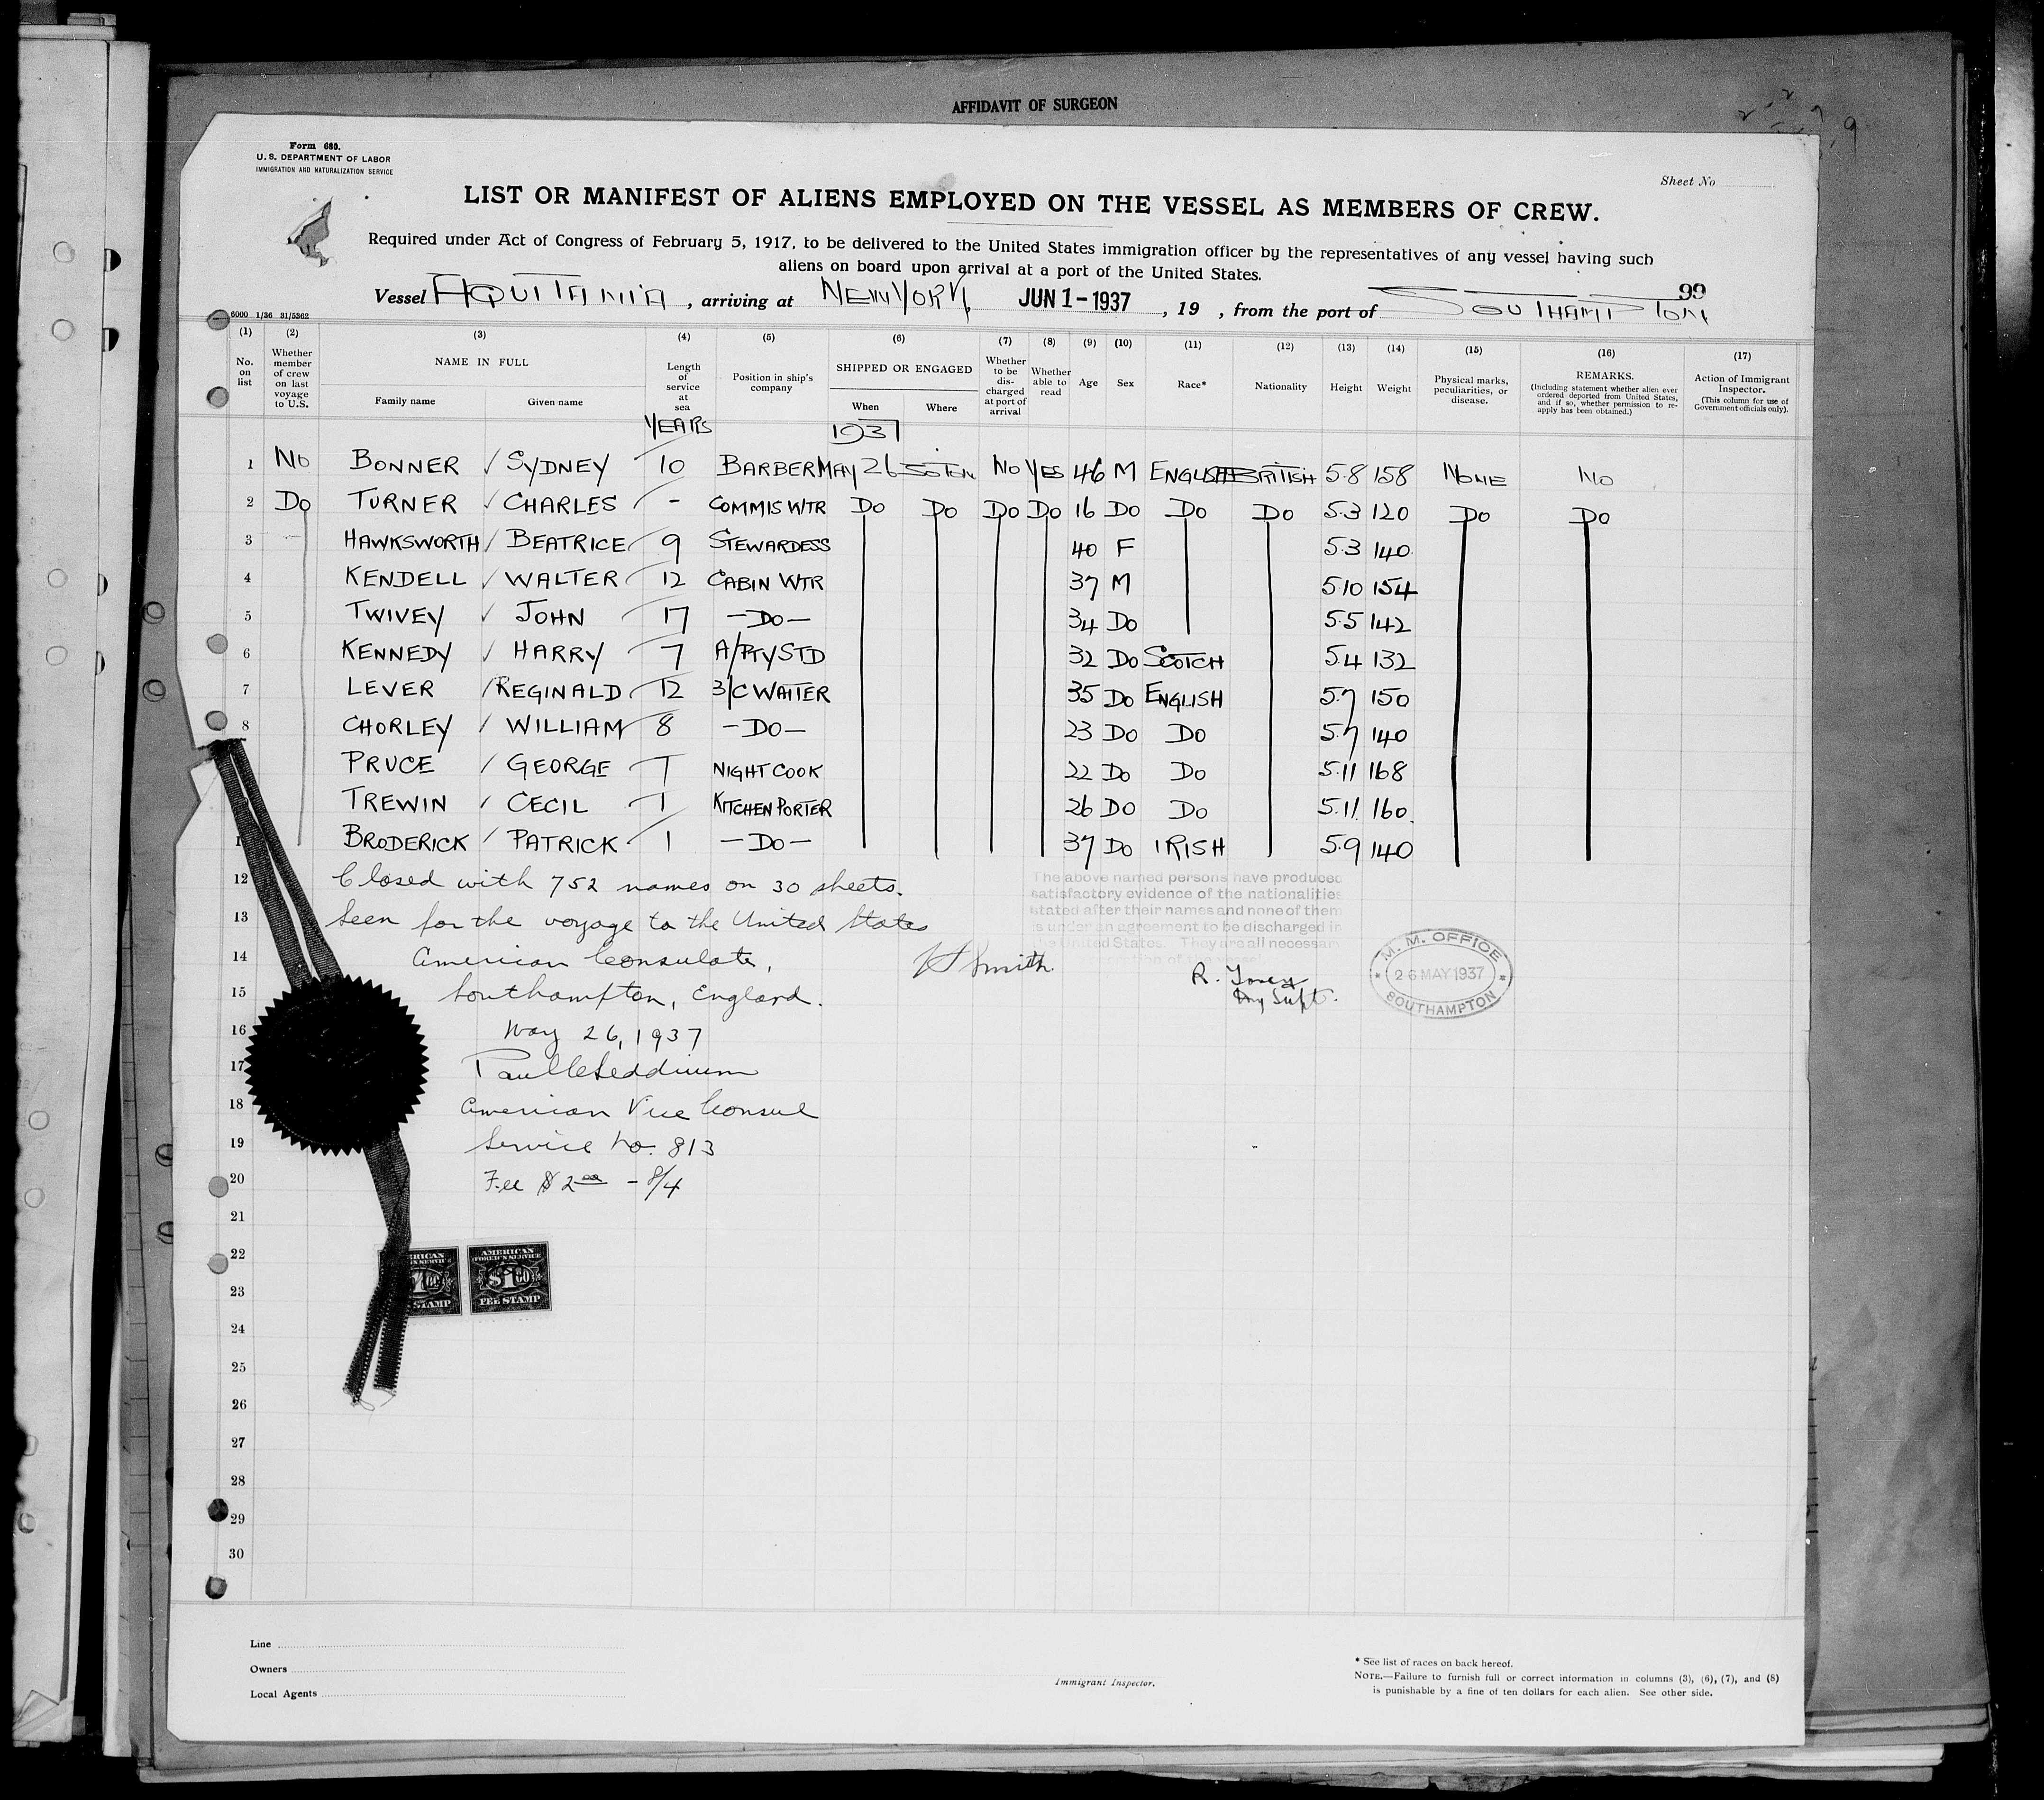 AFFIDAVIT OF SURGEON
Form 680.
U. S. DEPARTMENT OF LABOR
IMMIGRATION AND NATURALIZATION SERVICE
Sheet No
LIST OR MANIFEST OF ALIENS EMPLOYED ON THE VESSEL AS MEMBERS OF CREW.
Required under Act of Congress of February 5, 1917, to be delivered to the United States immigration officer by the representatives of any vessel having such
aliens on board upon arrival at a port of the United States.
99
Vessel AQUITANIA, arriving at NEW YORK, JUN 1-1937, 19 , from the port of SOUTHAMPTON
6000 1/36 31/5362
(1) (2) (3) (4) (5) (6) (7) (8) (9) (10) (11) (12) (13) (14) (15) (16) (17)
No. on list
Whether member of crew on last voyage to U.S.
NAME IN FULL
Family name Given name
Length of service at sea
Position in ship's company
SHIPPED OR ENGAGED
When Where
Whether to be discharged at port of arrival
Whether able to read
Age Sex Race* Nationality Height Weight
Physical marks, peculiarities, or disease.
REMARKS.
(Including statement whether alien ever ordered deported from United States, and if so, whether permission to reapply has been obtained.)
Action of Immigrant Inspector.
(This column for use of Government officials only).
YEARS 1937
1 No BONNER ✓ SYDNEY 10 BARBER MAY 26 SOTON NO YES 46 M ENGLISH BRITISH 5.8 158 NONE NO
2 Do TURNER ✓ CHARLES - COMMIS WTR Do Do Do Do 16 Do Do Do 5.3 120 Do Do
3 HAWKSWORTH / BEATRICE 9 STEWARDESS 40 F 5.3 140
4 KENDELL ✓ WALTER 12 CABIN WTR 37 M 5.10 154
5 TWIVEY ✓ JOHN 17 -Do- 34 Do 5.5 142
6 KENNEDY ✓ HARRY 7 A/PTY STD 32 Do SCOTCH 5.4 132
7 LEVER / REGINALD 12 3/C WAITER 35 Do ENGLISH 5.7 150
8 CHORLEY / WILLIAM 8 -Do- 23 Do Do 5.7 140
PRUCE / GEORGE 1 NIGHT COOK 22 Do Do 5.11 168
TREWIN / CECIL 1 KITCHEN PORTER 26 DO Do 5.11 160
1 BRODERICK / PATRICK 1 -Do- 37 Do IRISH 5.9 140
12 Closed with 752 names on 30 sheets.
The above named persons have produced
satisfactory evidence of the nationalities
stated after their names and none of them
is under an agreement to be discharged in
the United States. They are all necessary
13 Seen for the voyage to the United States
14 American Consulate, Smith
M. M. OFFICE
26 MAY 1937
SOUTHAMPTON
15 Southampton, England. R.
Supt.
16 May 26, 1937
17 Paul
18 American Vice Consul
19 Service No. 813
20 Fee $2.00 - 8/4
21
22
AMERICAN
FOREIGN SERVICE
$1.00
FEE STAMP
23
24
25
26
27
28
29
30
Line
Owners
Local Agents
Immigrant Inspector.
* See list of races on back hereof.
NOTE.—Failure to furnish full or correct information in columns (3), (6), (7), and (8)
is punishable by a fine of ten dollars for each alien. See other side.